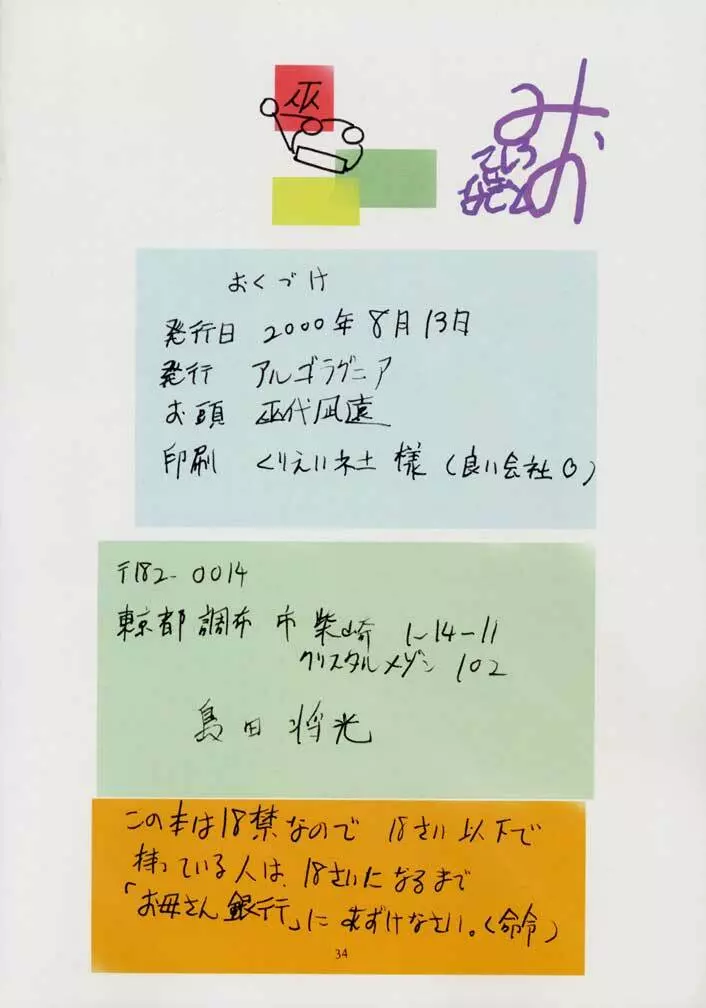 巫
みお
おくづけ
発行日 2000年8月13日
発行 アルゴラグニア
お頭 巫代凪遠
印刷 くりえい社 様 (良い会社)
〒182-0014
東京都調布市柴崎 1-14-11
クリスタルメゾン 102
島田将光
この本は18禁なので 18さい以下で
持っている人は、18さいになるまで
「お母さん銀行」にあずけなさい。(命令)
34